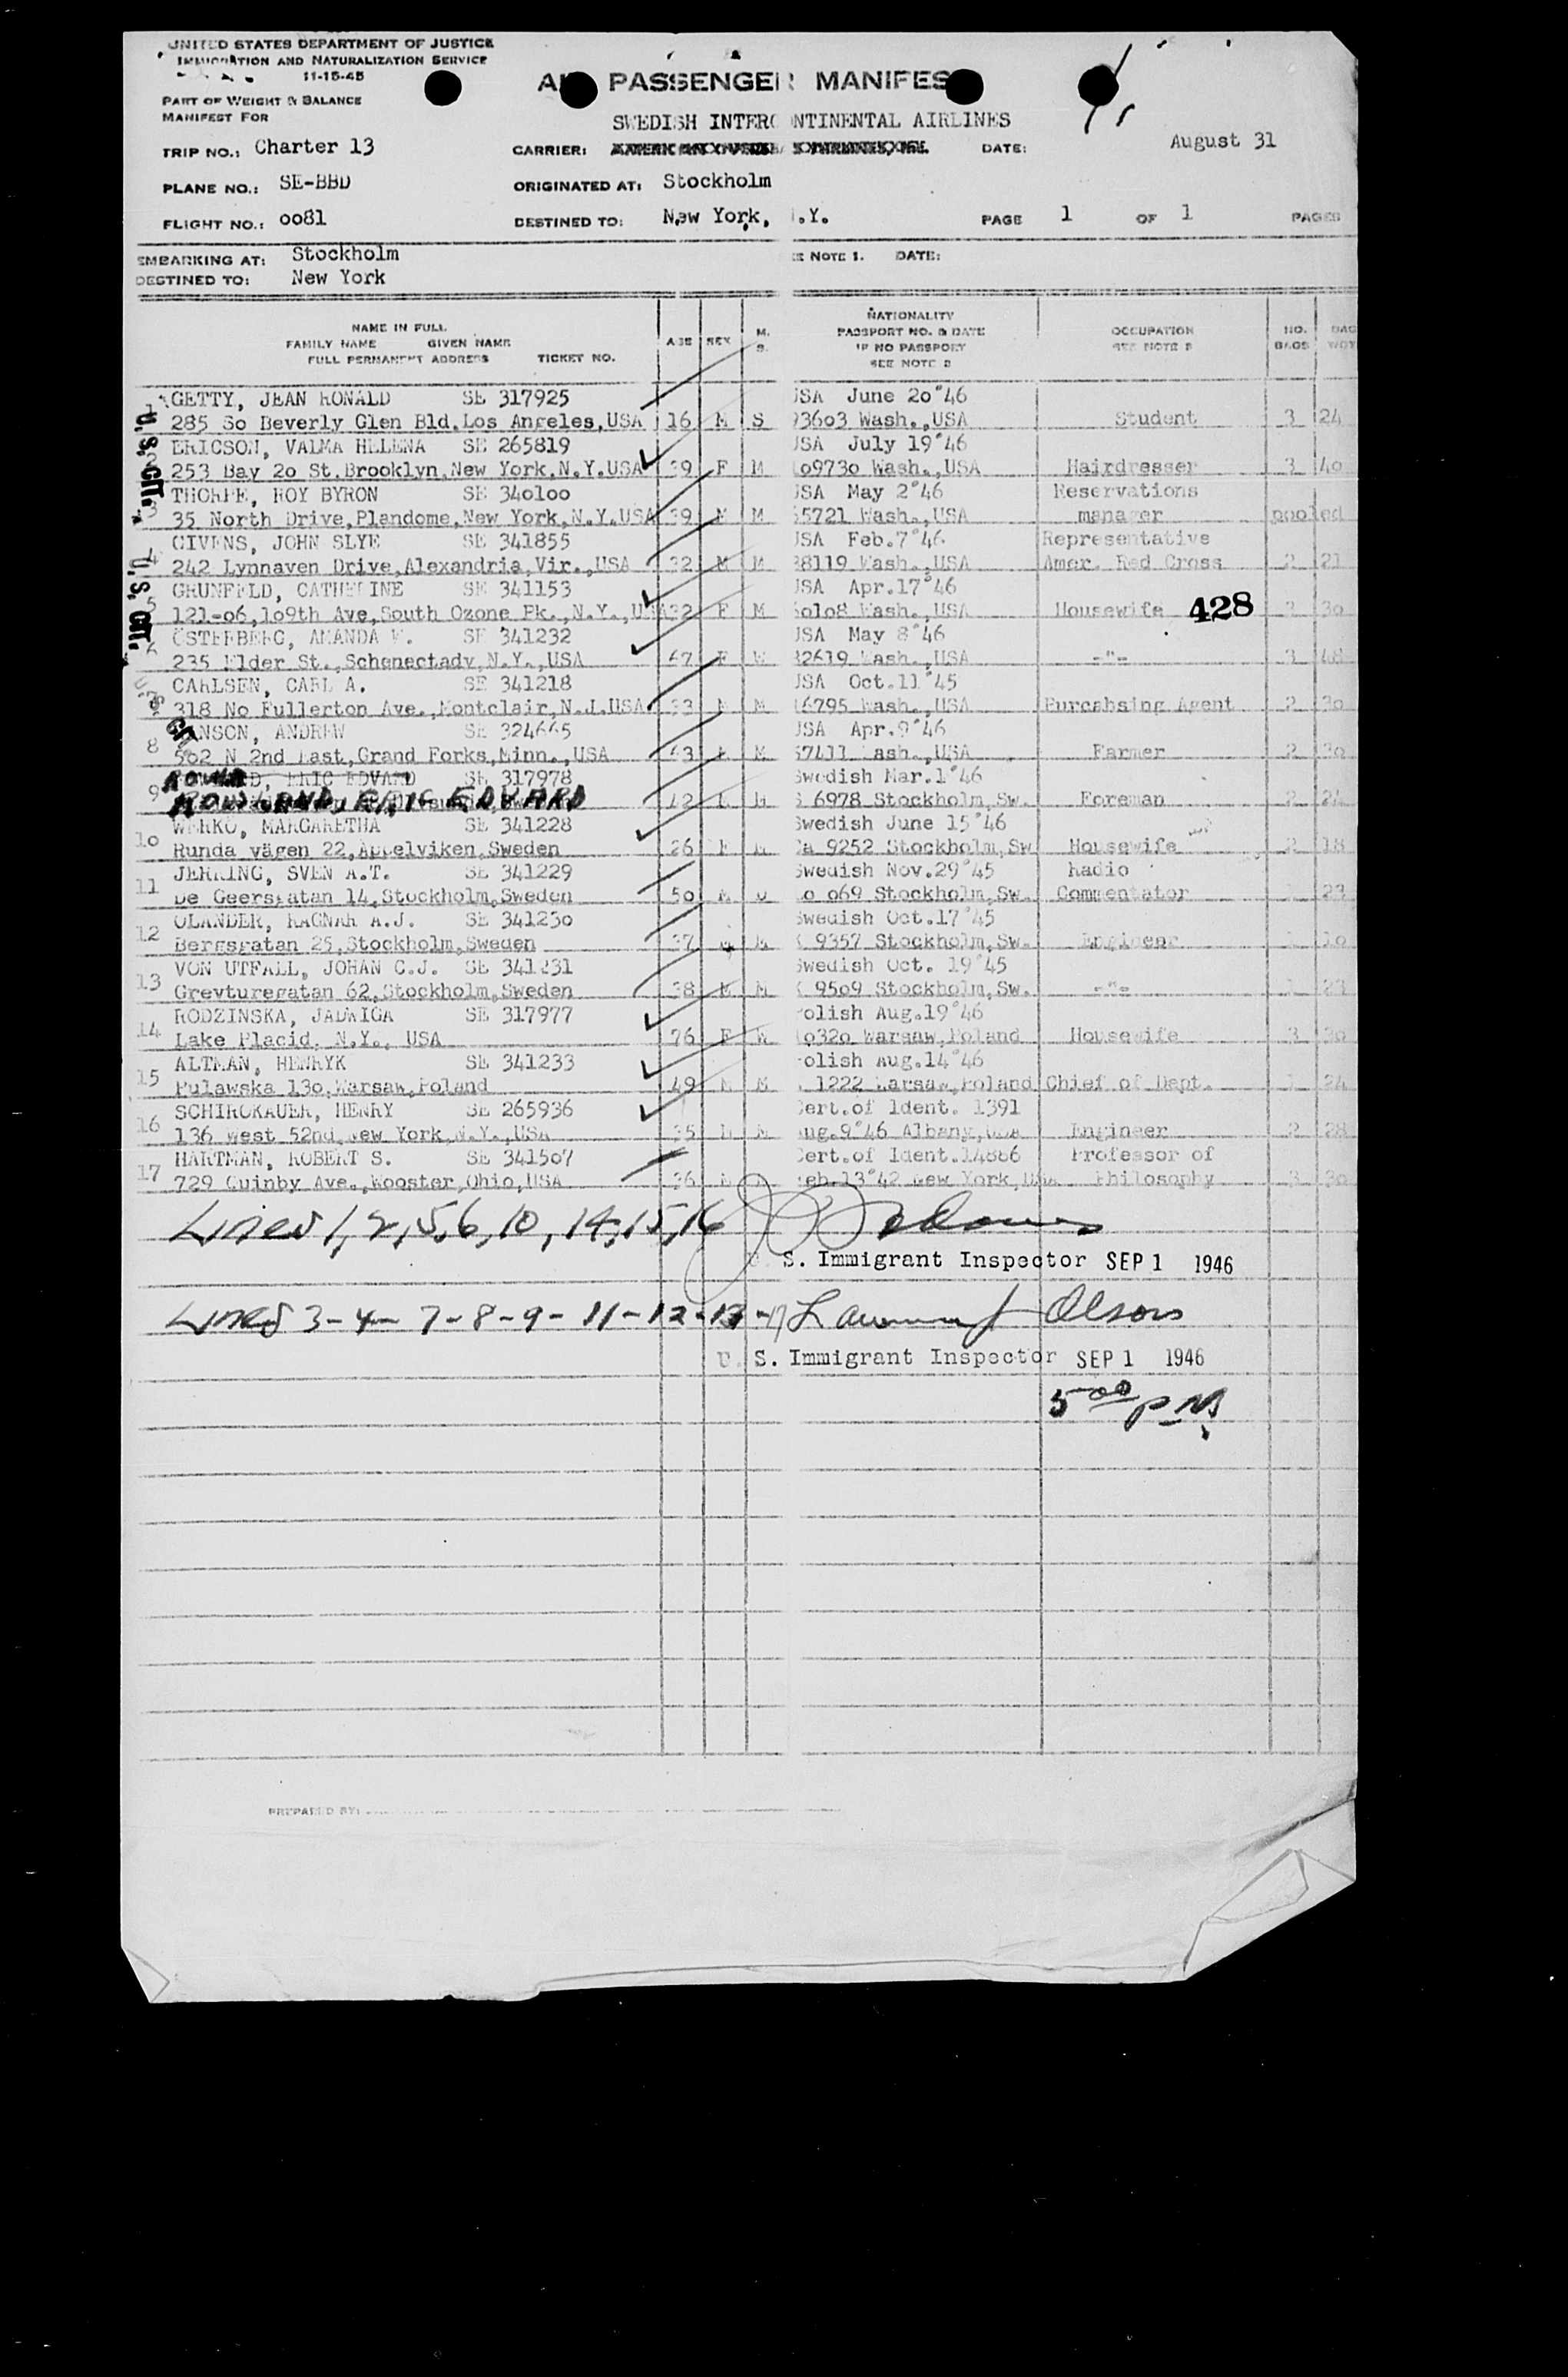 UNITED STATES DEPARTMENT OF JUSTICE
IMMIGRATION AND NATURALIZATION SERVICE
11-15-45
PART OF WEIGHT & BALANCE
MANIFEST FOR
PASSENGER MANIFES
SWEDISH INTERC NTINENTAL AIRLINES
TRIP NO.: Charter 13 CARRIER: DATE: August 31
PLANE NO.: SE-BBD ORIGINATED AT: Stockholm
FLIGHT NO.: oo81 DESTINED TO: New York, .Y. PAGE 1 OF 1 PAGES
EMBARKING AT: Stockholm E NOTE 1. DATE:
DESTINED TO: New York
NAME IN FULL
FAMILY NAME GIVEN NAME
FULL PERMANENT ADDRESS TICKET NO.
AGE SEX M. S.
NATIONALITY
PASSPORT NO. & DATE
IF NO PASSPORT
SEE NOTE
OCCUPATION
SEE NOTE
NO. BAGS
BAG WGT
U.S. CIT.
U.S. CIT.
1 GETTY, JEAN RONALD SE 317925 USA June 2o°46
285 So Beverly Glen Bld.Los Angeles,USA 16 M S 936o3 Wash.,USA Student 3 24
2 ERICSON, VALMA HELENA SE 265819 USA July 19°46
253 Bay 2o St.Brooklyn,New York,N.Y.USA 39 F M 1o973o Wash.,USA Hairdresser 3 4o
3 THORPE, ROY BYRON SE 34o1oo USA May 2°46 Reservations
35 North Drive,Plandome,New York,N.Y.USA 39 M M 55721 Wash.,USA manager pooled
4 GIVENS, JOHN SLYE SE 341855 USA Feb.7°46 Representative
242 Lynnaven Drive,Alexandria,Vir.,USA 32 M M 38119 Wash.,USA Amer. Red Cross 2 21
5 GRUNFELD, CATHERINE SE 341153 USA Apr.17°46
121-o6,1o9th Ave,South Ozone Pk.,N.Y.,USA 32 F M 6o1o8 Wash.,USA Housewife 428 3 3o
6 ÖSTERBERG, AMANDA W. SE 341232 USA May 8°46
235 Elder St.,Schenectady,N.Y.,USA 67 F W 32619 Wash.,USA -"- 3 48
7 CARLSEN, CARL A. SE 341218 USA Oct.11°45
318 No Fullerton Ave.,Montclair,N.J.USA 33 M M 16795 Wash.,USA Purcahsing Agent 2 3o
8 ANSON, ANDREW SE 324665 USA Apr.9°46
5o2 N 2nd East,Grand Forks,Minn.,USA 63 M M 57411 Wash.,USA Farmer 2 3o
9 ERIC EDVARD SE 317978 Swedish Mar.1°46
ERIC EDVARD 42 M M 6978 Stockholm,Sw. Foreman 2
1o WERKÖ, MARGARETHA SE 341228 Swedish June 15°46
Runda vägen 22,Äppelviken,Sweden 26 F M 9252 Stockholm,Sw Housewife 2 18
11 JERRING, SVEN A.T. SE 341229 Swedish Nov.29°45 Radio
De Geersgatan 14,Stockholm,Sweden 5o M o69 Stockholm,Sw. Commentator 1 23
12 OLANDER, RAGNAR A.J. SE 34123o Swedish Oct.17°45
Bergsgatan 25,Stockholm,Sweden 37 M M 9357 Stockholm,Sw. Engineer 1 1o
13 VON UTFALL, JOHAN C.J. SE 341231 Swedish Oct. 19°45
Grevturegatan 62,Stockholm,Sweden 38 M M 95o9 Stockholm,Sw. -"- 1 23
14 RODZINSKA, JADWIGA SE 317977 Polish Aug.19°46
Lake Placid, N.Y., USA 76 F W 1o32o Warsaw,Poland Housewife 3 3o
15 ALTMAN, HENRYK SE 341233 Polish Aug.14°46
Pulawska 13o,Warsaw,Poland 49 M M 1222 Warsaw,Poland Chief of Dept. 1 24
16 SCHIROKAUER, HENRY SE 265936 Cert.of Ident. 1391
136 West 52nd,New York,N.Y.,USA 35 M M Aug.9°46 Albany,USA Engineer 2 28
17 HARTMAN, ROBERT S. SE 3415o7 Cert.of Ident.14886 Professor of
729 Quinby Ave.,Wooster,Ohio,USA 36 M M Feb.13°42 New York,USA Philosophy 3 3o
Lines 1,2,5,6,10,14,15,16
S. Immigrant Inspector SEP 1 1946
Lines 3-4-7-8-9-11-12-13-17 Olson
U. S. Immigrant Inspector SEP 1 1946
5 00 PM
PREPARED BY: